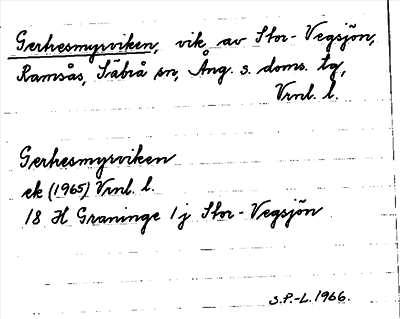 Gerhesmyrviken, vik av Stor-Vegsjön,
Ramsås, Säbrå sn, Ång. s. doms. tg,
Vrnl. l.
Gerhesmyrviken
ek (1965) Vrnl. l.
18 H Graninge 1 j Stor-Vegsjön
S.P.-L. 1966.